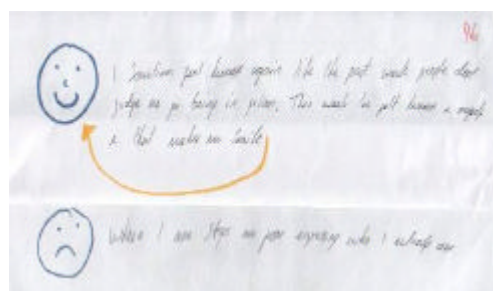 96
I Sometimes feel human again like the past week people dont
judge me for being in prison, This week Ive felt human &amp; myself
&amp; that makes me smile
when I am stops me from enjoying who I actually am